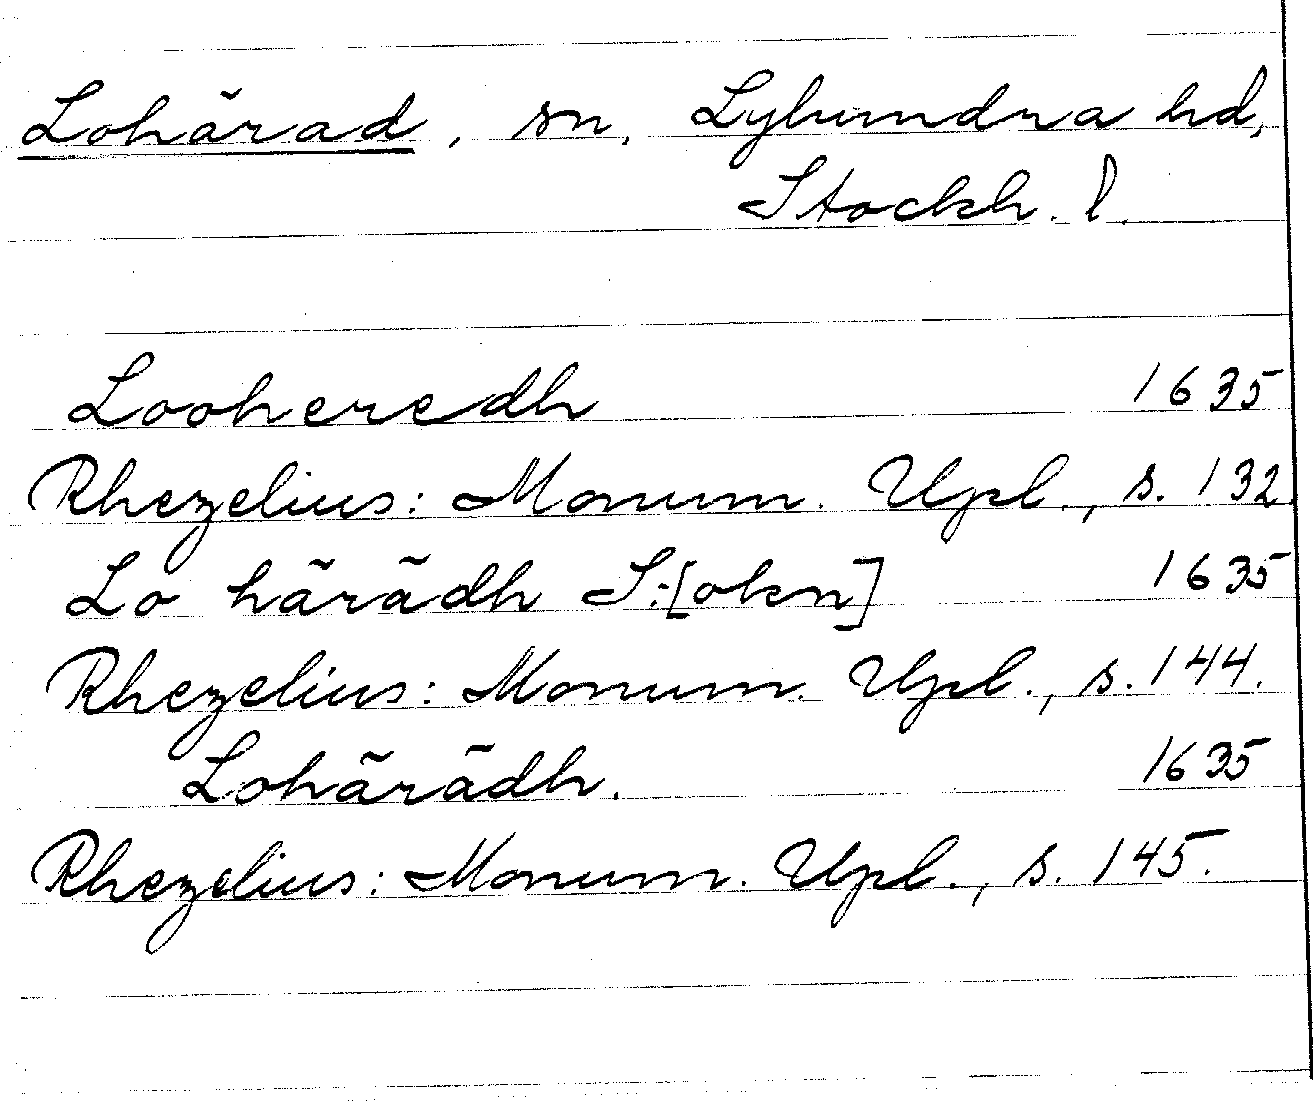 Lohärad, sn, Lyhundra hd,
Stockh. l.
Looheredh 1635
Rhezelius: Monum. Upl., s. 132
Lo härädh S:[okn] 1635
Rhezelius: Monum. Upl., s. 144.
Lohärädh. 1635
Rhezelius: Monum. Upl., s. 145.